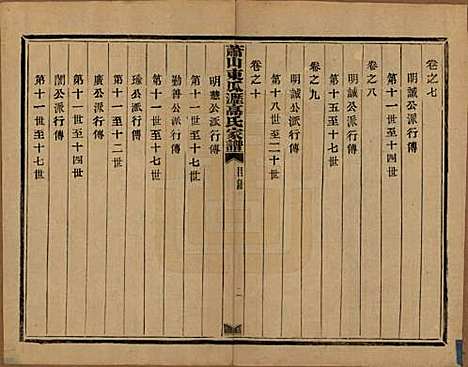 卷之七
明誠公派行傳
第十一世至十四世
卷之八
明誠公派行傳
第十五世至十七世
卷之九
明誠公派行傳
第十八世至二十世
卷之十
蕭山東瓜瀝高氏家譜
目錄
明華公派行傳
第十一世至十七世
勤善公派行傳
第十一世至十二世
瑔公派行傳
第十一世至十七世
廣公派行傳
第十一世至十四世
闇公派行傳
第十一世至十七世